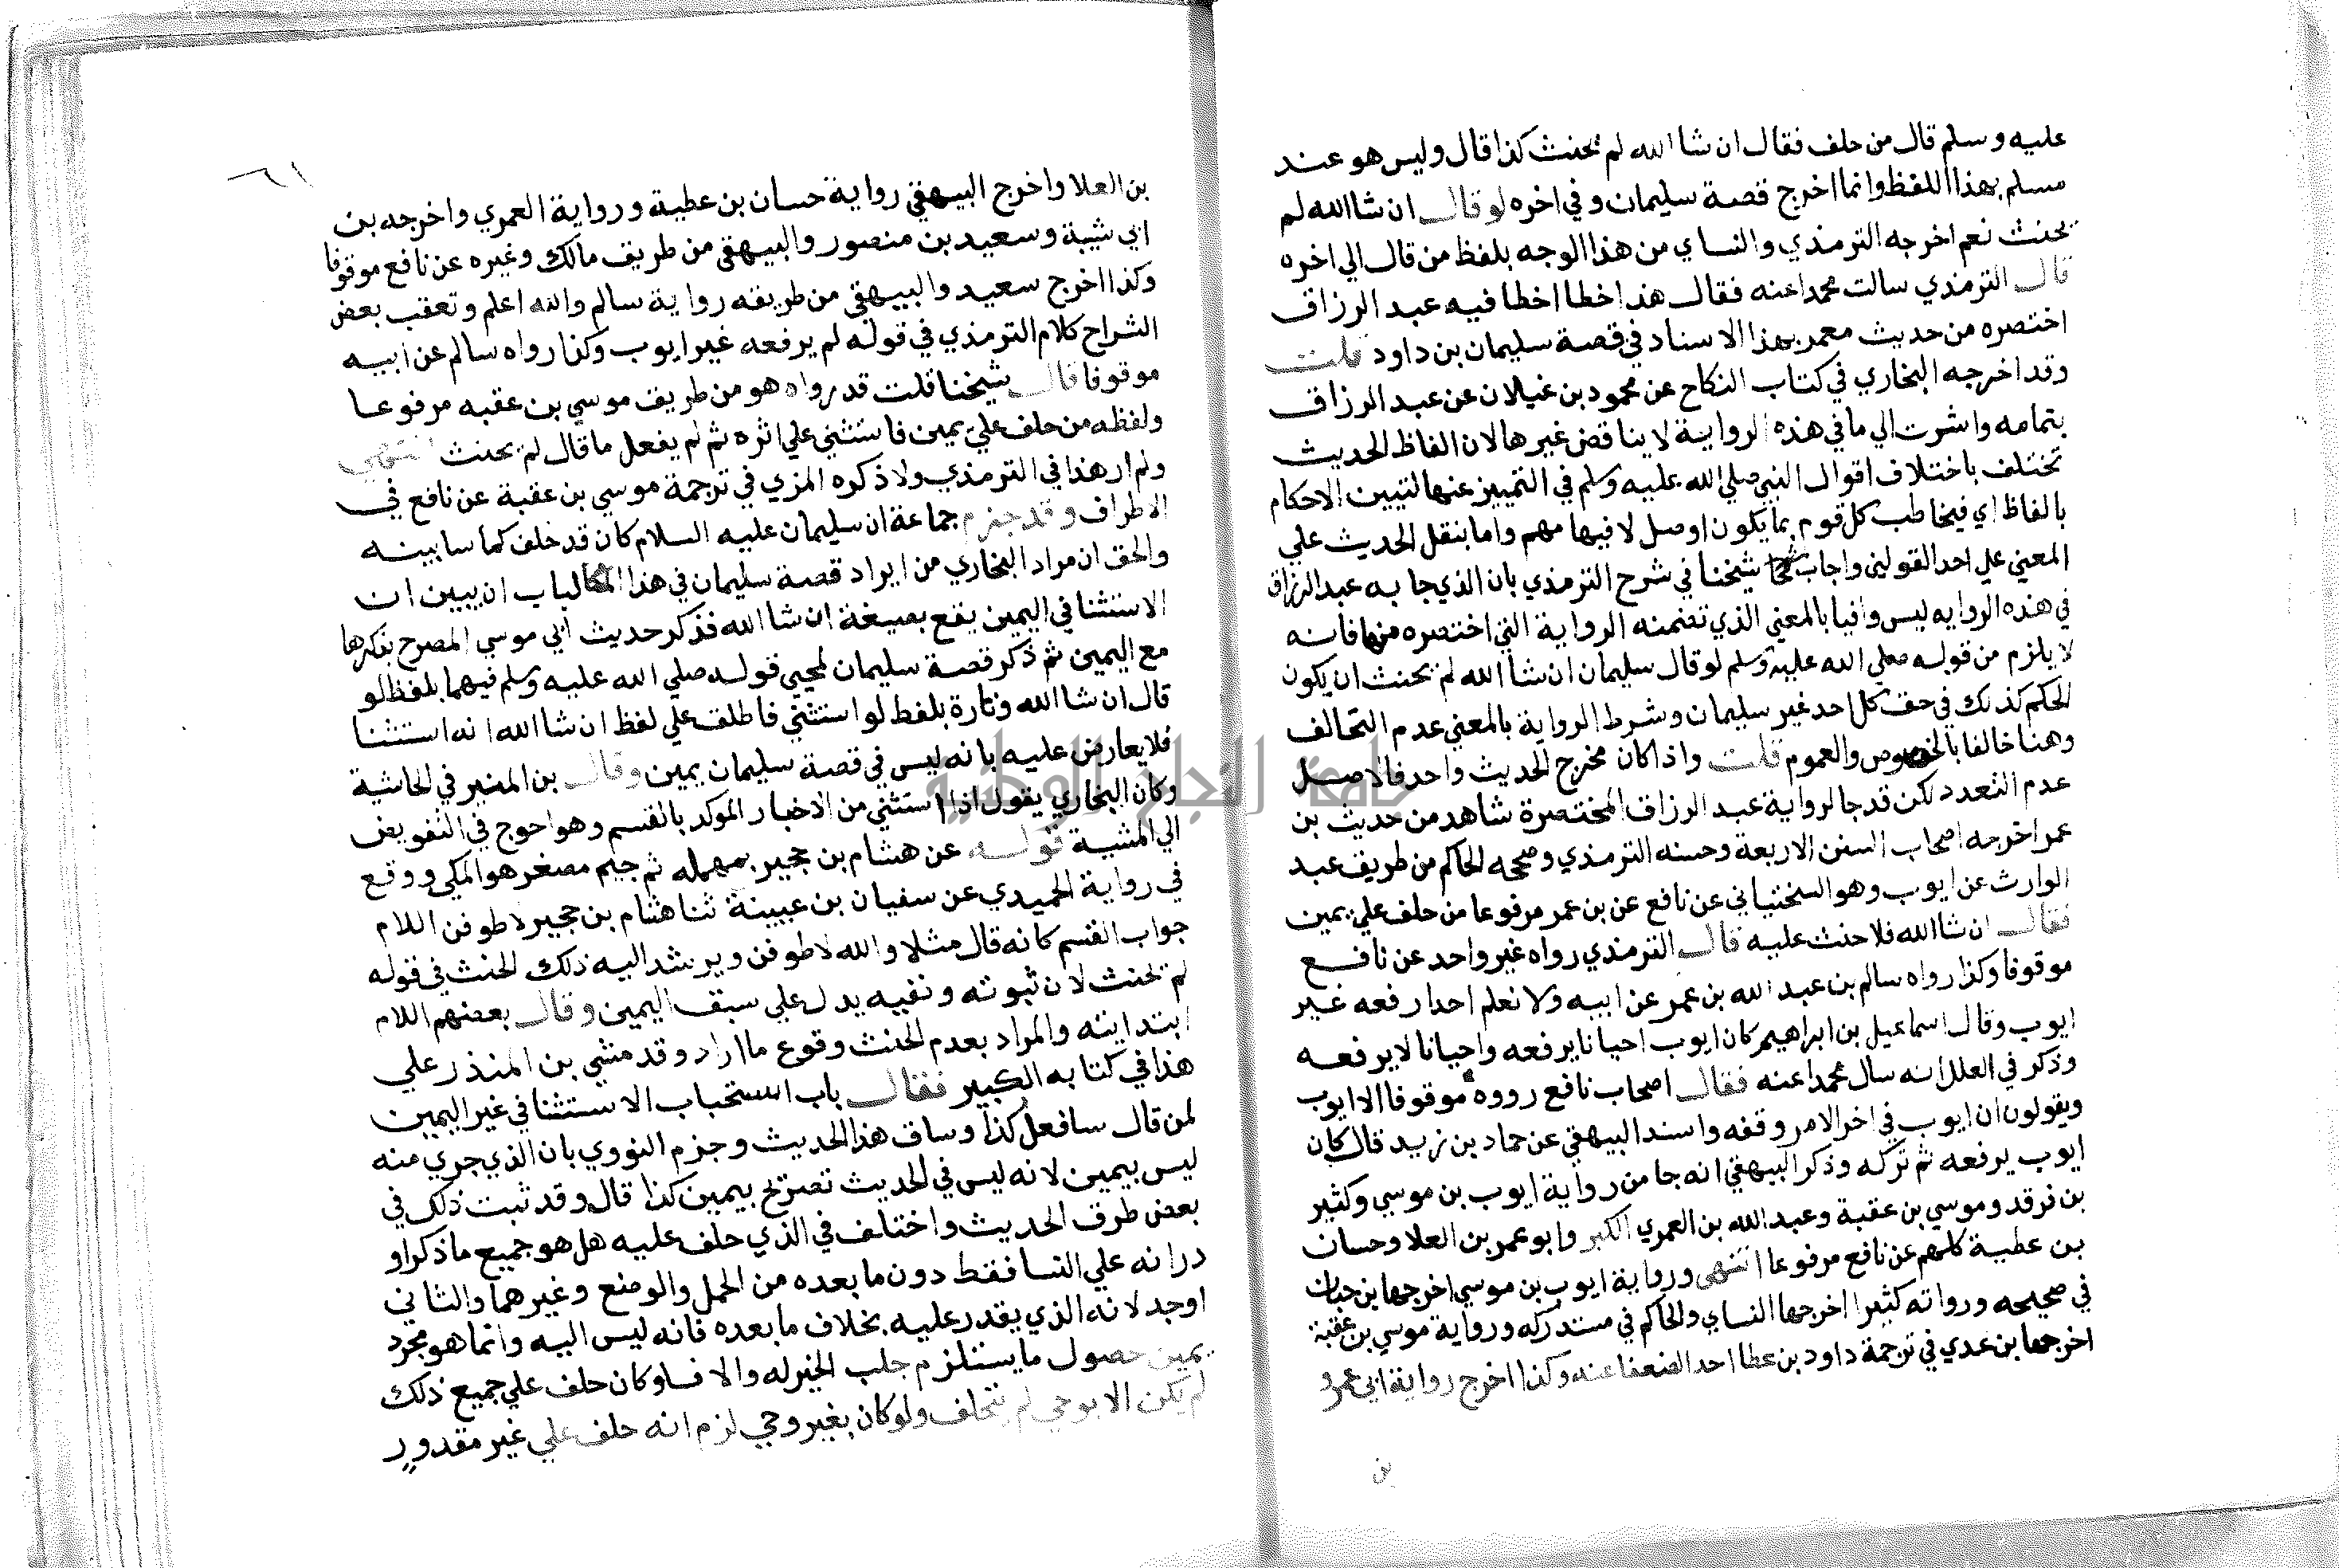 عليه وسلم قال من حلف فقال ان شا الله لم يحنث كذا قال وليس هو عند
مسلم بهذا اللفظ وانما اخرج قصة سليمان وفي اخره لو قال ان شا الله لم
يحنث نعم اخرجه الترمذي والنساي من هذا الوجه بلفظ من قال الي اخره
قال الترمذي سالت محمدا عنه فقال هذا خطا اخطا فيه عبد الرزاق
اختصره من حديث معمر بهذا الاسناد في قصة سليمان بن داود قلت
وقد اخرجه البخاري في كتاب النكاح عن محمود بن غيلان عن عبد الرزاق
بتمامه واشرت الي ما في هذه الرواية لا يناقض غيرها لان الفاظ الحديث
تختلف باختلاف اقوال النبي صلي الله عليه وسلم في التمييز عنها لتبين الاحكام
بالفاظ اي فيخاطب كل قوم بما يكون اوصل لافيها مهم واما بنقل الحديث علي
المعني علي احد القولين واجاب شيخنا في شرح الترمذي بان الذي جا به عبد الرزاق
في هذه الروايه ليس وافيا بالمعني الذي تضمنه الرواية التي اختصره منها فانه
لا يلزم من قوله صلي الله عليه وسلم لو قال سليمان ان شا الله لم يحنث ان يكون
الحكم كذلك في حق كل احد غير سليمان وشرط الرواية بالمعني عدم التخالف
وهنا خالفا بالخصوص والعموم قلت واذا كان مخرج الحديث واحد فالاصل
عدم التعدد لكن قد جا لرواية عبد الرزاق المختصرة شاهد من حديث بن
عمر اخرجه اصحاب السنن الاربعة وحسنه الترمذي وصححه الحاكم من طريق عبد
الوارث عن ايوب وهو السختياني عن نافع عن بن عمر مرفوعا من حلف علي يمين
فقال ان شا الله فلا حنث عليه قال الترمذي رواه غير واحد عن نافع
موقوفا وكذا رواه سالم بن عبد الله بن عمر عن ابيه ولا نعلم احدا رفعه غير
ايوب وقال اسماعيل بن ابراهيم كان ايوب احيانا يرفعه واحيانا لا يرفعه
وذكر في العلل انه سال محمدا عنه فقال اصحاب نافع رووه موقوفا الا ايوب
ويقولون ان ايوب في اخر الامر وقفه واسند البيهقي عن حماد بن زيد قال كان
ايوب يرفعه ثم تركه وذكر البيهقي انه جا من رواية ايوب بن موسي وكثير
بن فرقد وموسي بن عقبة وعبد الله بن العمري الكبر وابو عمر بن العلا وحسان
بن عطية كلهم عن نافع مرفوعا انتهي ورواية ايوب بن موسي اخرجها بن حبان
في صحيحه ورواته كثيرا اخرجها النساي والحاكم في مستدركه ورواية موسي بن عقبة
اخرجها بن عدي في ترجمة داود بن عطا احد الضعفا عنه وكذا اخرج رواية ابي عمرو
بن
بن العلا واخرج البيهقي رواية حسان بن عطية ورواية العمري واخرجه بن
ابي شيبة وسعيد بن منصور والبيهقي من طريق مالك وغيره عن نافع موقوفا
وكذا اخرج سعيد والبيهقي من طريقه رواية سالم والله اعلم وتعقب بعض
الشراح كلام الترمذي في قوله لم يرفعه غير ايوب وكذا رواه سالم عن ابيه
موقوفا قال شيخنا قلت قد رواه هو من طريق موسي بن عقبه مرفوعا
ولفظه من حلف علي يمين فاستثني علي اثره ثم لم يفعل ما قال لم يحنث انتهي
ولم ار هذا في الترمذي ولا ذكره المزي في ترجمة موسي بن عقبة عن نافع في
الاطراف وقد جزم جماعة ان سليمان عليه السلام كان قد حلف كما سابينه
والحق ان مراد البخاري من ايراد قصة سليمان في هذا الباب ان يبين ان
الاستثنا في اليمين يقع بصيغة ان شا الله فذكر حديث ابي موسي المصرح بذكرها
مع اليمين ثم ذكر قصة سليمان لمجي قوله صلي الله عليه وسلم فيهما بلفظ لو
قال ان شا الله وتارة بلفظ لو استثني فاطلق علي لفظ ان شا الله انه استثنا
فلا يعارض عليه بانه ليس في قصة سليمان يمين وقال بن المنير في الحاشية
وكان البخاري يقول اذا استثني من الاخبار الموكد بالقسم وهو احوج في التفويض
الي المشية قوله عن هشام بن حجير بمهمله ثم جيم مصغر هو المكي ووقع
في رواية الحميدي عن سفيان بن عيينة ثنا هشام بن حجير لاطوفن اللام
جواب القسم كانه قال مثلا والله لاطوفن ويرشد اليه ذلك الحنث في قوله
لم يحنث لان ثبوته ونفيه يدل علي سبق اليمين وقال بعضهم اللام
ابتدايته والمراد بعدم الحنث وقوع ما اراد وقد مشي بن المنذر علي
هذا في كتابه الكبير فقال باب استحباب الاستثنا في غير اليمين
لمن قال سافعل كذا وساق هذا الحديث وجزم النووي بان الذي جري منه
ليس بيمين لانه ليس في الحديث تصريح بيمين كذا قال وقد ثبت ذلك في
بعض طرق الحديث واختلف في الذي حلف عليه هل هو جميع ما ذكر او
درانه علي النسا فقط دون ما بعده من الحمل والوضع وغيرهما والثاني
اوجد لانه الذي يقدر عليه بخلاف ما بعده فانه ليس اليه وانما هو مجرد
يمين حصول ما يستلزم جلب الخير له والا فلو كان حلف علي جميع ذلك
لم يكن الا بوحي لم يتخلف ولو كان بغير وحي لزم انه حلف علي غير مقدور
جامعة النجاح الوطنية